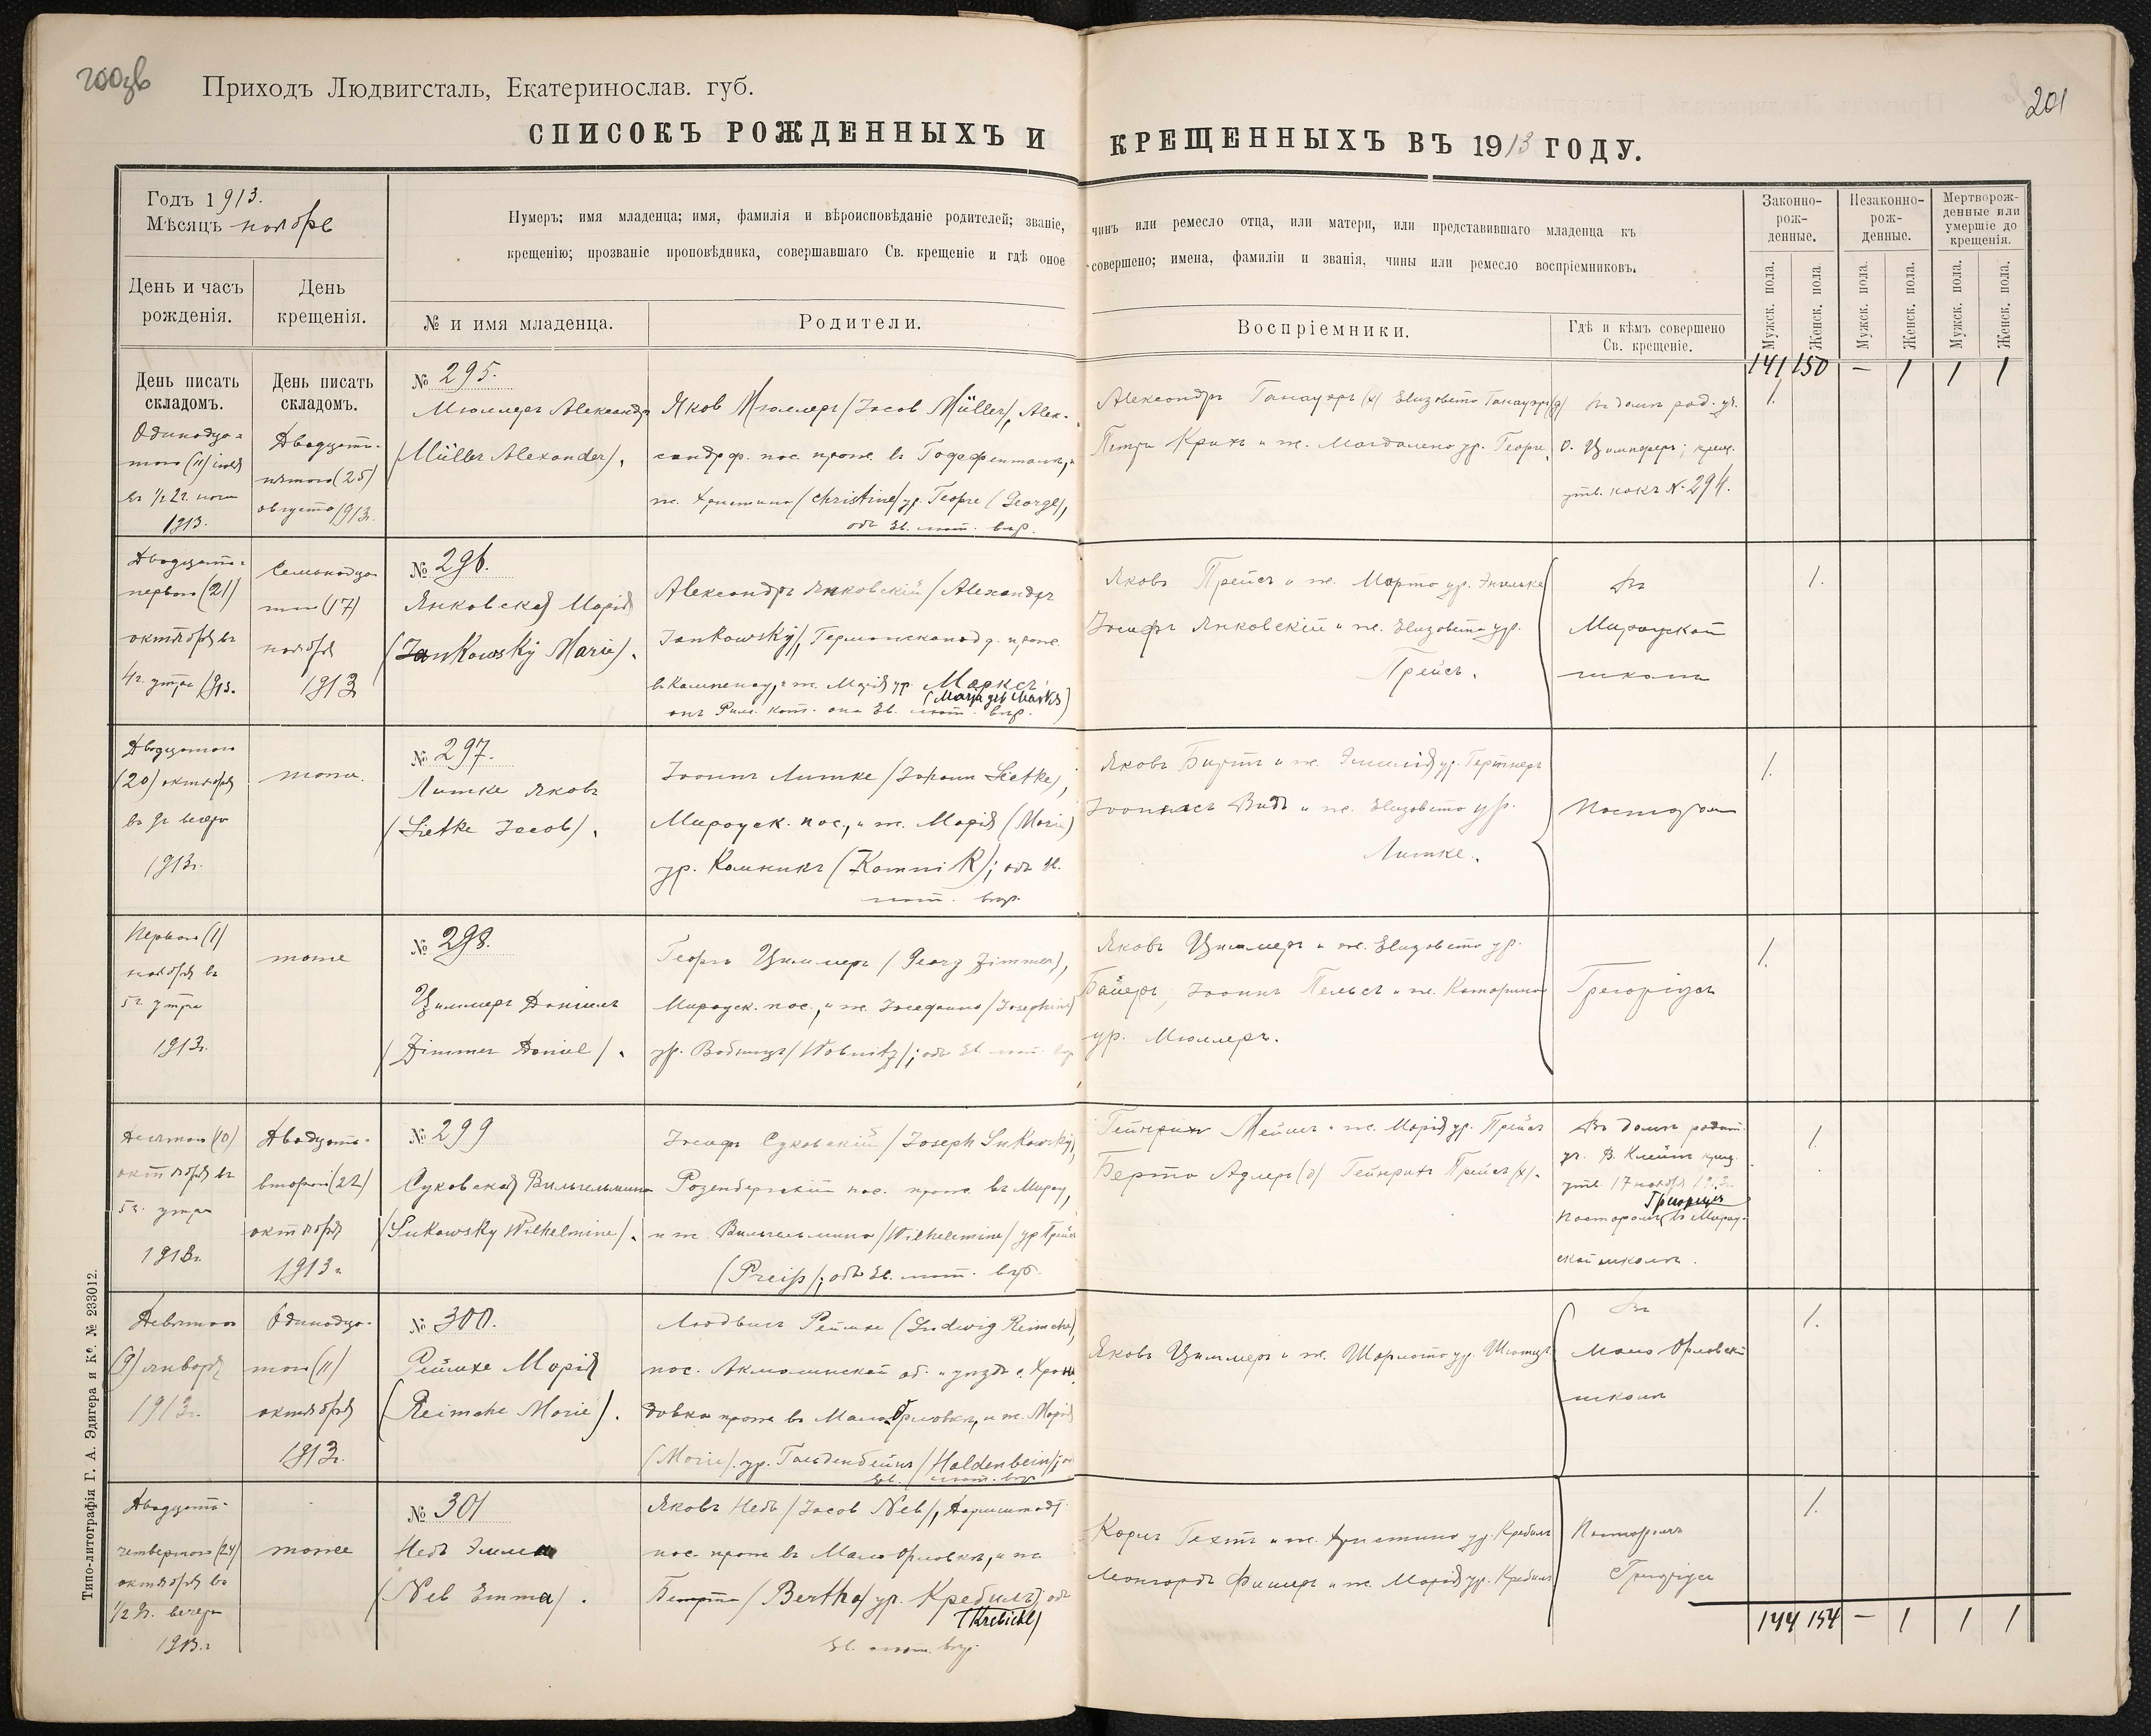 200зв
Приходъ Людвигсталь, Екатеринослав. губ.
201
СПИСОКЪ РОЖДЕННЫХЪ И КРЕЩЕННЫХЪ ВЪ 1913 ГОДУ.
Годъ 1913.
Мѣсяцъ ноябрь
Нумеръ; имя младенца; имя, фамилія и вѣроисповѣданіе родителей; званіе, чинъ или ремесло отца, или матери, или представившаго младенца къ
крещенію; прозваніе проповѣдника, совершавшаго Св. крещеніе и гдѣ оное совершено; имена, фамиліи и званія, чины или ремесло воспріемниковъ.
Законно-
рож-
денные.
Незаконно-
рож-
денные.
Мертворож-
денные или
умершіе до
крещенія.
День и часъ
рожденія.
День
крещенія.
№ и имя младенца.
Родители.
Воспріемники.
Гдѣ и кѣмъ совершено
Св. крещеніе.
Мужск. пола.
Женск. пола.
Мужск. пола.
Женск. пола.
Мужск. пола.
Женск. пола.
141 150 — 1 1 1
День писать
складомъ.
Одинадца-
таго (11) іюля
въ 1/2 2 г. ночи
1913.
День писать
складомъ.
Двадцать-
пятаго (25)
августа 1913.
№ 295.
Мюллеръ Александръ
(Müller Alexander).
Яков Мюллеръ (Jacob Müller), Алек-
сандрф. пос. прож. въ
ж. Христина (Christine) ур. Георге (George),
оба Ев. лют. вѣр.
Александръ (х) Елизавета (д)
Петръ Крихъ и ж. Магдалена ур. Георге.
въ домѣ род. уч.
О. крещ.
утв. какъ № 294.
1.
Двадцать-
перваго (21)
октября въ
4 г. утра 1913.
Семнадца-
таго (17)
ноября
1913
№ 296.
Янковская Марія
(Jankowsky Marie).
Александръ Янковскій (Alexander
Jankowsky), прож.
въ ж. Марія ур. Марксъ
(Marja geb Marks)
онъ Рим. кат. она Ев. лют. вѣр.
Яковъ Прейсъ и ж. Марта ур.
Іосифъ Янковскій и ж. Елизавета ур.
Прейсъ.
Въ
Мирауской
школѣ
1.
Двадцатаго
(20) октября
въ 9 г. вечера
1913 г.
тоже.
№ 297.
Литке Яковъ
(Lietke Jacob).
Іоаннъ Литке (Johann Lietke),
Мирауск. пос., и ж. Марія (Marie)
ур. Камникъ (Kamnik); оба Ев.
лют. вѣр.
Яковъ и ж. Эмилія ур. Гертнеръ
Іоаннесъ и ж. Елизавета ур.
Литке.
Пасторомъ
1.
Перваго (1)
ноября въ
5 г. утра
1913.
тоже
№ 298.
Циммеръ Даніилъ
(Zimmer Daniel).
Георгъ Циммеръ (Georg Zimmer),
Мирауск. пос., и ж. Іозефина (Josephine)
ур. Вобницъ (Wobnitz); оба Ев. лют. вѣр
Яковъ Циммеръ и ж. Елизавета ур.
Байеръ, Іоаннъ и ж. Катарина
ур. Мюллеръ.
Грегоріусъ
1.
Десятаго (10)
октября въ
5 г. утра
1913 г.
Двадцать-
второго (22)
октября
1913 г.
№ 299
Суковская Вильгельмина
(Sukowsky Wilhelmine).
Іосифъ Суковскій (Joseph Sukowsky),
Розенбергскій пос. прож. въ Мирау,
и ж. Вильгельмина (Wilhelmine) ур Прейсъ
(Preiß); оба Ев. лют. вѣр.
Гейнрихъ и ж. Марія ур. Прейсъ
Берта Адлеръ (д) Гейнрихъ Прейсъ (х).
Въ домѣ родит.
уч. В. Клейнъ крещ.
утв. 17 ноября 1913 г.
Грегоріусъ
Пасторомъ въ Мирау-
ской школѣ.
1.
Девятаго
(9) января
1913 г.
Одинадца-
таго (11)
октября
1913.
№ 300.
Реймхе Марія
(Reimche Marie).
Людвигъ Реймхе (Ludwig Reimche),
пос. Акмолинской об. и уѣзда
прож въ Мало-Орловкѣ, и ж. Марія
(Marie) ур. Гальденбейнъ (Haldenbein);
Ев. лют. вѣр
Яковъ Циммеръ и ж. Шарлота ур.
Въ
Мало Орловской
школѣ
1.
Двадцать-
четвертаго (24)
октября въ
1/2 9 г. вечера
1913 г.
тоже
№ 301
Небъ Эмма
(Neb Emma).
Яковъ Небъ (Jacob Neb),
пос. прож въ Мало Орловкѣ, и ж
Берта (Bertha) ур. Кребиль; оба
(Krebichl)
Ев. лют. вѣр.
Карлъ и ж. Христина ур. Кребиль
Фишеръ и ж. Марія ур. Кребиль
Пасторомъ
Грегоріусъ
1.
144 154 — 1 1 1
Типо-литографія Г. А. Эдигера и К°. № 233012.